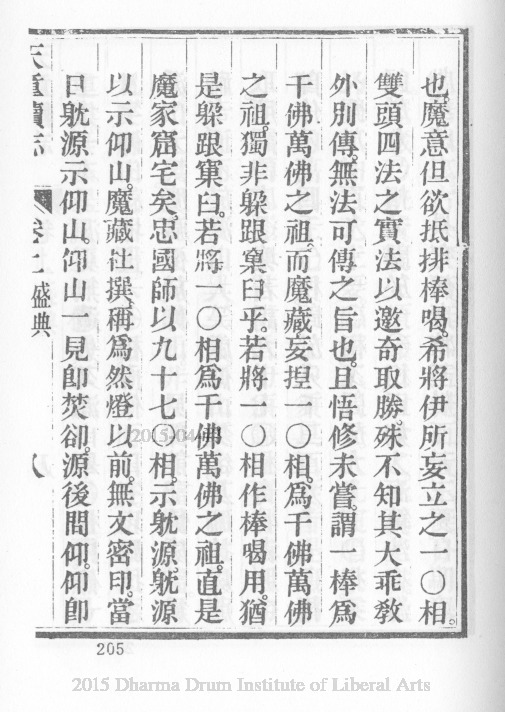 也。魔意但欲抵排棒喝。希將伊所妄立之一〇相。
雙頭四法之實法以邀奇取勝。殊不知其大乖教
外別傳。無法可傳之旨也。且悟修未嘗謂一棒爲
千佛萬佛之祖。而魔藏妄揑一〇相。爲千佛萬佛
之祖。獨非躲跟窠臼乎。若將一〇相作棒喝用。猶
是躲跟窠臼。若將一〇相爲千佛萬佛之祖。直是
魔家窟宅矣。忠國師以九十七〇相。示躭源。躭源
以示仰山。魔藏杜撰。稱爲然燈以前。無文密印。當
日躭源示仰山。仰山一見卽焚卻。源後問仰。仰卽
天童續志
卷上 盛典
八
2015/04
205
2015 Dharma Drum Institute of Liberal Arts